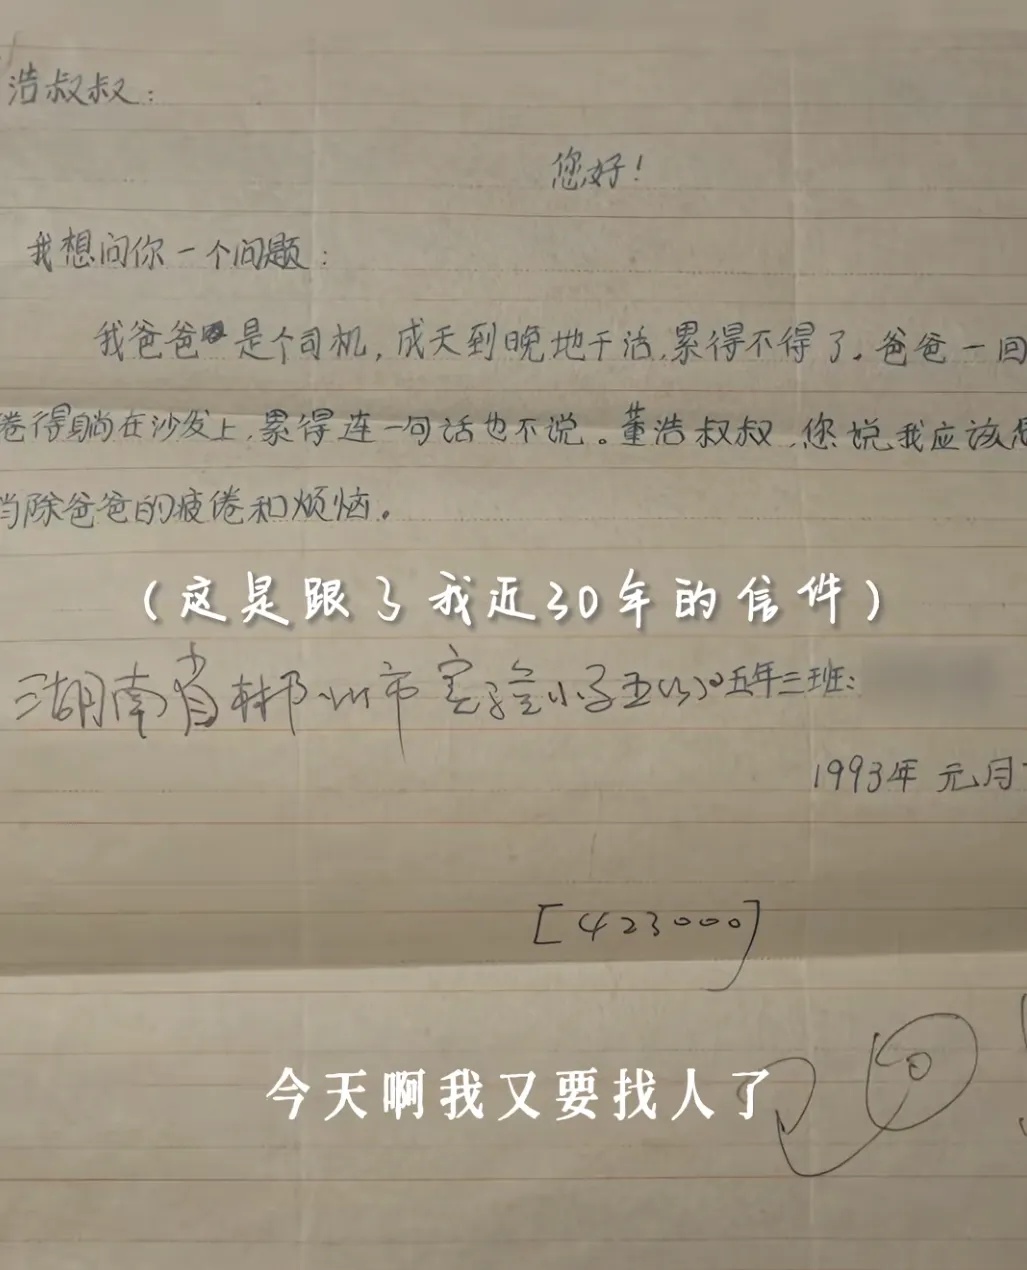 浩叔叔:
您好!
我想问你一个问题:
我爸爸是个司机,成天到晚地干活,累得不得了。爸爸一回
倦得躺在沙发上,累得连一句话也不说。董浩叔叔,您说,我应该怎
消除爸爸的疲倦和烦恼。
(这是跟了我近30年的信件)
湖南省郴州市实验小学五(3)五年三班:
1993年元月
[423000]
今天啊我又要找人了